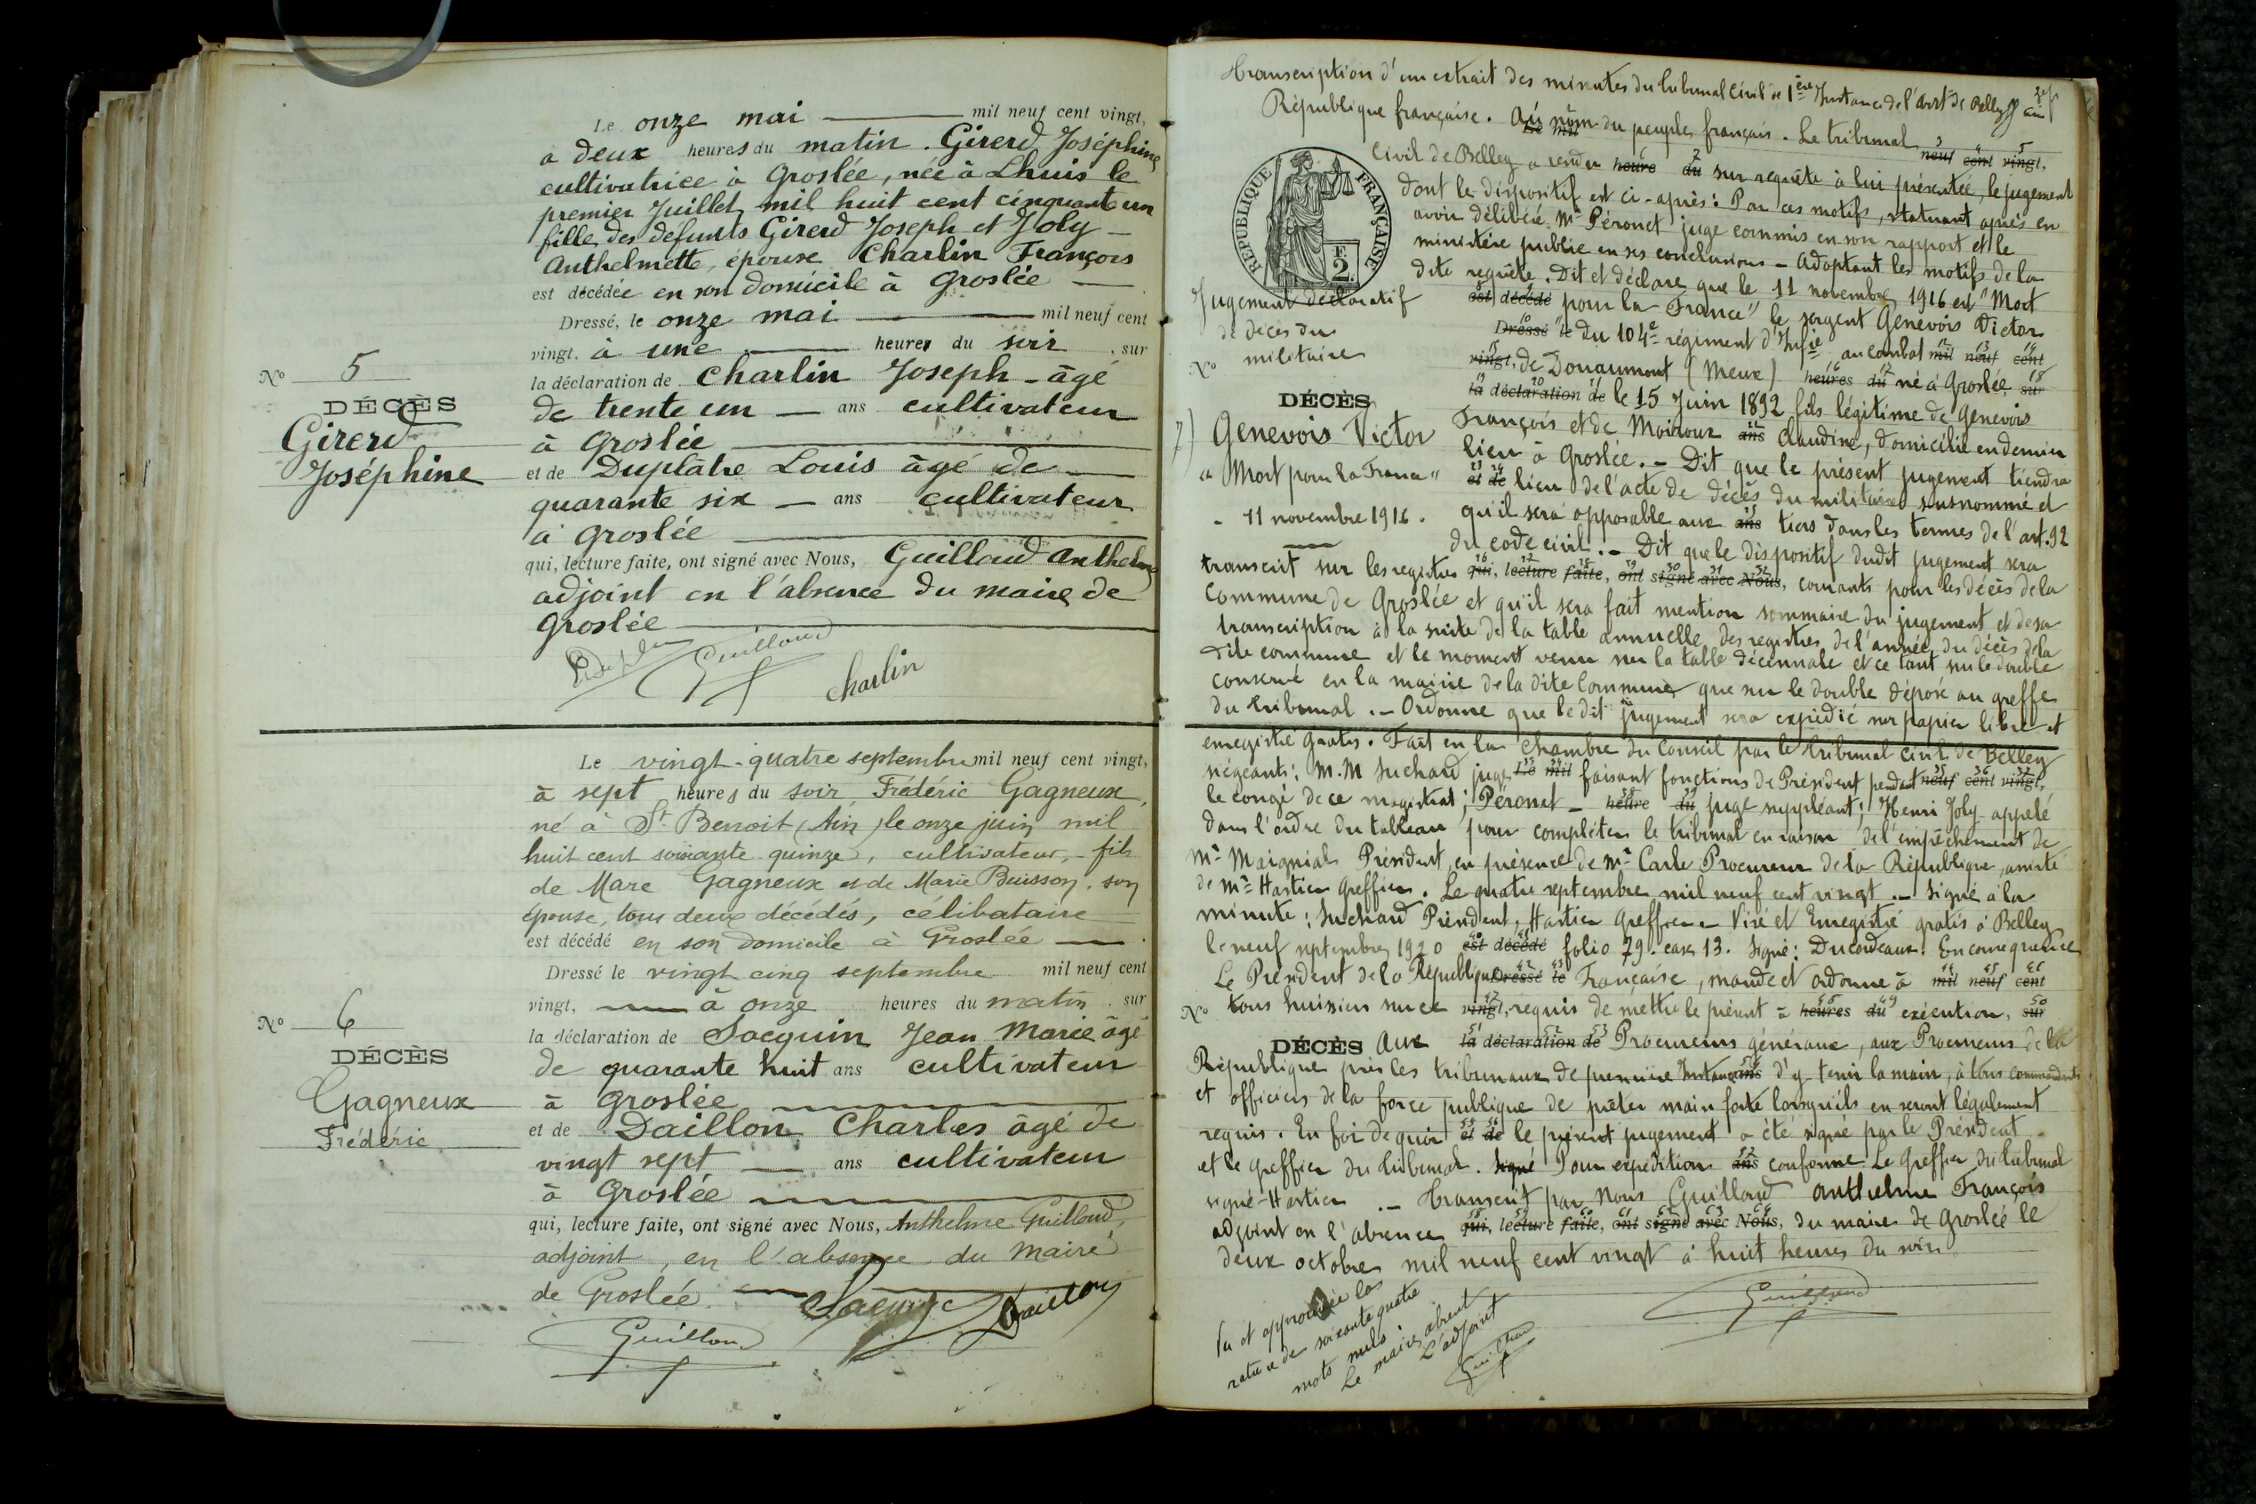 Le onze mai mil neuf cent vingt,
à deux heures du matin. Girerd Joséphine
cultivatrice à Groslée, née à Lhuis le
premier Juillet mil huit cent cinquante un
fille des defunts Girerd Joseph et Joly
Anthelmette, épouse Charlin François
est décédée en son domicile à Groslée
Dressé, le onze mai mil neuf cent
vingt, à une heure du soir, sur
la déclaration de Charlin Joseph - âgé
de trente un ans cultivateur
à Groslée
et de Duplâtre Louis âgé de
quarante six ans cultivateur
à Groslée
qui, lecture faite, ont signé avec Nous, Guilloud Anthelme
adjoint en l'absence du maire de
Groslée
Guilloud
Charlin
No 5
DÉCÈS
Girerd
Joséphine
Le vingt-quatre septembre mil neuf cent vingt,
à sept heures du soir, Frédéric Gagneux,
né à St Benoit (Ain) le onze juin mil
huit cent soixante quinze, cultivateur, fils
de Marc Gagneux et de Marie Buisson, son
épouse, tous deux décédés, célibataire
est décédé en son domicile à Groslée
Dressé le vingt cinq septembre mil neuf cent
vingt, à onze heures du matin, sur
la déclaration de Sacquin Jean Marie âgé
de quarante huit ans cultivateur
à Groslée
et de Daillon Charles âgé de
vingt sept ans cultivateur
à Groslée
qui, lecture faite, ont signé avec Nous, Anthelme Guilloud,
adjoint, en l'absence du Maire
de Groslée.
Guilloud
Daillon
No 6
DÉCÈS
Gagneux
Frédéric
Transcription d'un extrait des minutes du tribunal Civil de 1ère Instance de l'arrt de Belley
République française. Au nom du peuple français. Le tribunal neuf cent vingt,
Civil de Belley a rendu heure du sur requête à lui présentée, le jugement
dont le dispositif est ci-après: Par ces motifs, statuant après en
avoir délibéré Mr Péronet juge commis en son rapport et le
ministère public en ses conclusions - Adoptant les motifs de la
dite requête. Dit et déclare que le 11 novembre 1916 est "Mort
est décédé pour la France" le sergent Genevois Victor
Dressé le du 104e régiment d'Infie au combat mil neuf cent
vingt, de Douaumont (Meuse) heures du né à Groslée, sur
la déclaration de le 15 Juin 1892 fils légitime de Genevois
François et de Moiroux ans Claudine, domicilié en dernier
lieu à Groslée. - Dit que le présent jugement tiendra
et de lieu de l'acte de décès du militaire susnommé et
qu'il sera opposable aux ans tiers dans les termes de l'art. 92
du code civil. - Dit que le dispositif dudit jugement sera
transcrit sur les registres qui, lecture faite, ont signé avec Nous, courants pour les décès de la
Commune de Groslée et qu'il sera fait mention sommaire du jugement et de sa
transcription à la suite de la table annuelle des registres de l'année du décès de la
dite commune et le moment venu sur la table décennale et ce tant sur le double
conservé en la mairie de la dite Commune que sur le double déposé au greffe
du tribunal. - Ordonne que le dit jugement sera expédié sur papier libre et
enregistré gratis. Fait en la Chambre du Conseil par le tribunal civil de Belley
siégeants: M.M Suchard juge Le mil faisant fonctions de Président pendant neuf cent vingt,
le congé de ce magistrat; Péronet - heure du juge suppléant; Henri Joly appelé
dans l'ordre du tableau pour compléter le tribunal en raison de l'empêchement de
Mr Maignial Président, en présence de Mr Carle Procureur de la République, assisté
de Mr Hartier Greffier. Le quatre septembre mil neuf cent vingt. - Signé à la
minute: Suchard Président, Hartier Greffier - Visé et Enregistré gratis à Belley
le neuf septembre 1920 est décédé folio 79. case 13. Signé: Ducordeaux. En conséquence
Le Président de la République Dressé le Française, mande et ordonne à mil neuf cent
tous huissiers sur ce vingt, requis de mettre le présent à heures du exécution, sur
aux la déclaration de Procureurs généraux, aux Procureurs de la
République près les tribunaux de première Instance ans d'y tenir la main, à tous commandants
et officiers de la force publique de prêter main forte lorsqu'ils en seront légalement
requis. En foi de quoi et de le présent jugement a été signé par le Président
et le greffier du tribunal. signé Pour expédition ans conforme Le Greffier du tribunal
signé Hartier. - Transcrit par Nous Guilloud Anthelme François
adjoint en l'absence qui, lecture faite, ont signé avec Nous, du maire de Groslée le
deux octobre mil neuf cent vingt à huit heures du soir
Guilloud
Lu et approuvée la
rature de soixante quatre
mots nuls.
Le maire absent
L'adjoint
RÉPUBLIQUE FRANÇAISE
F. 2.
Jugement déclaratif
de décès du
militaire
No
DÉCÈS
7) Genevois Victor
"Mort pour la France"
- 11 novembre 1916.
No
DÉCÈS